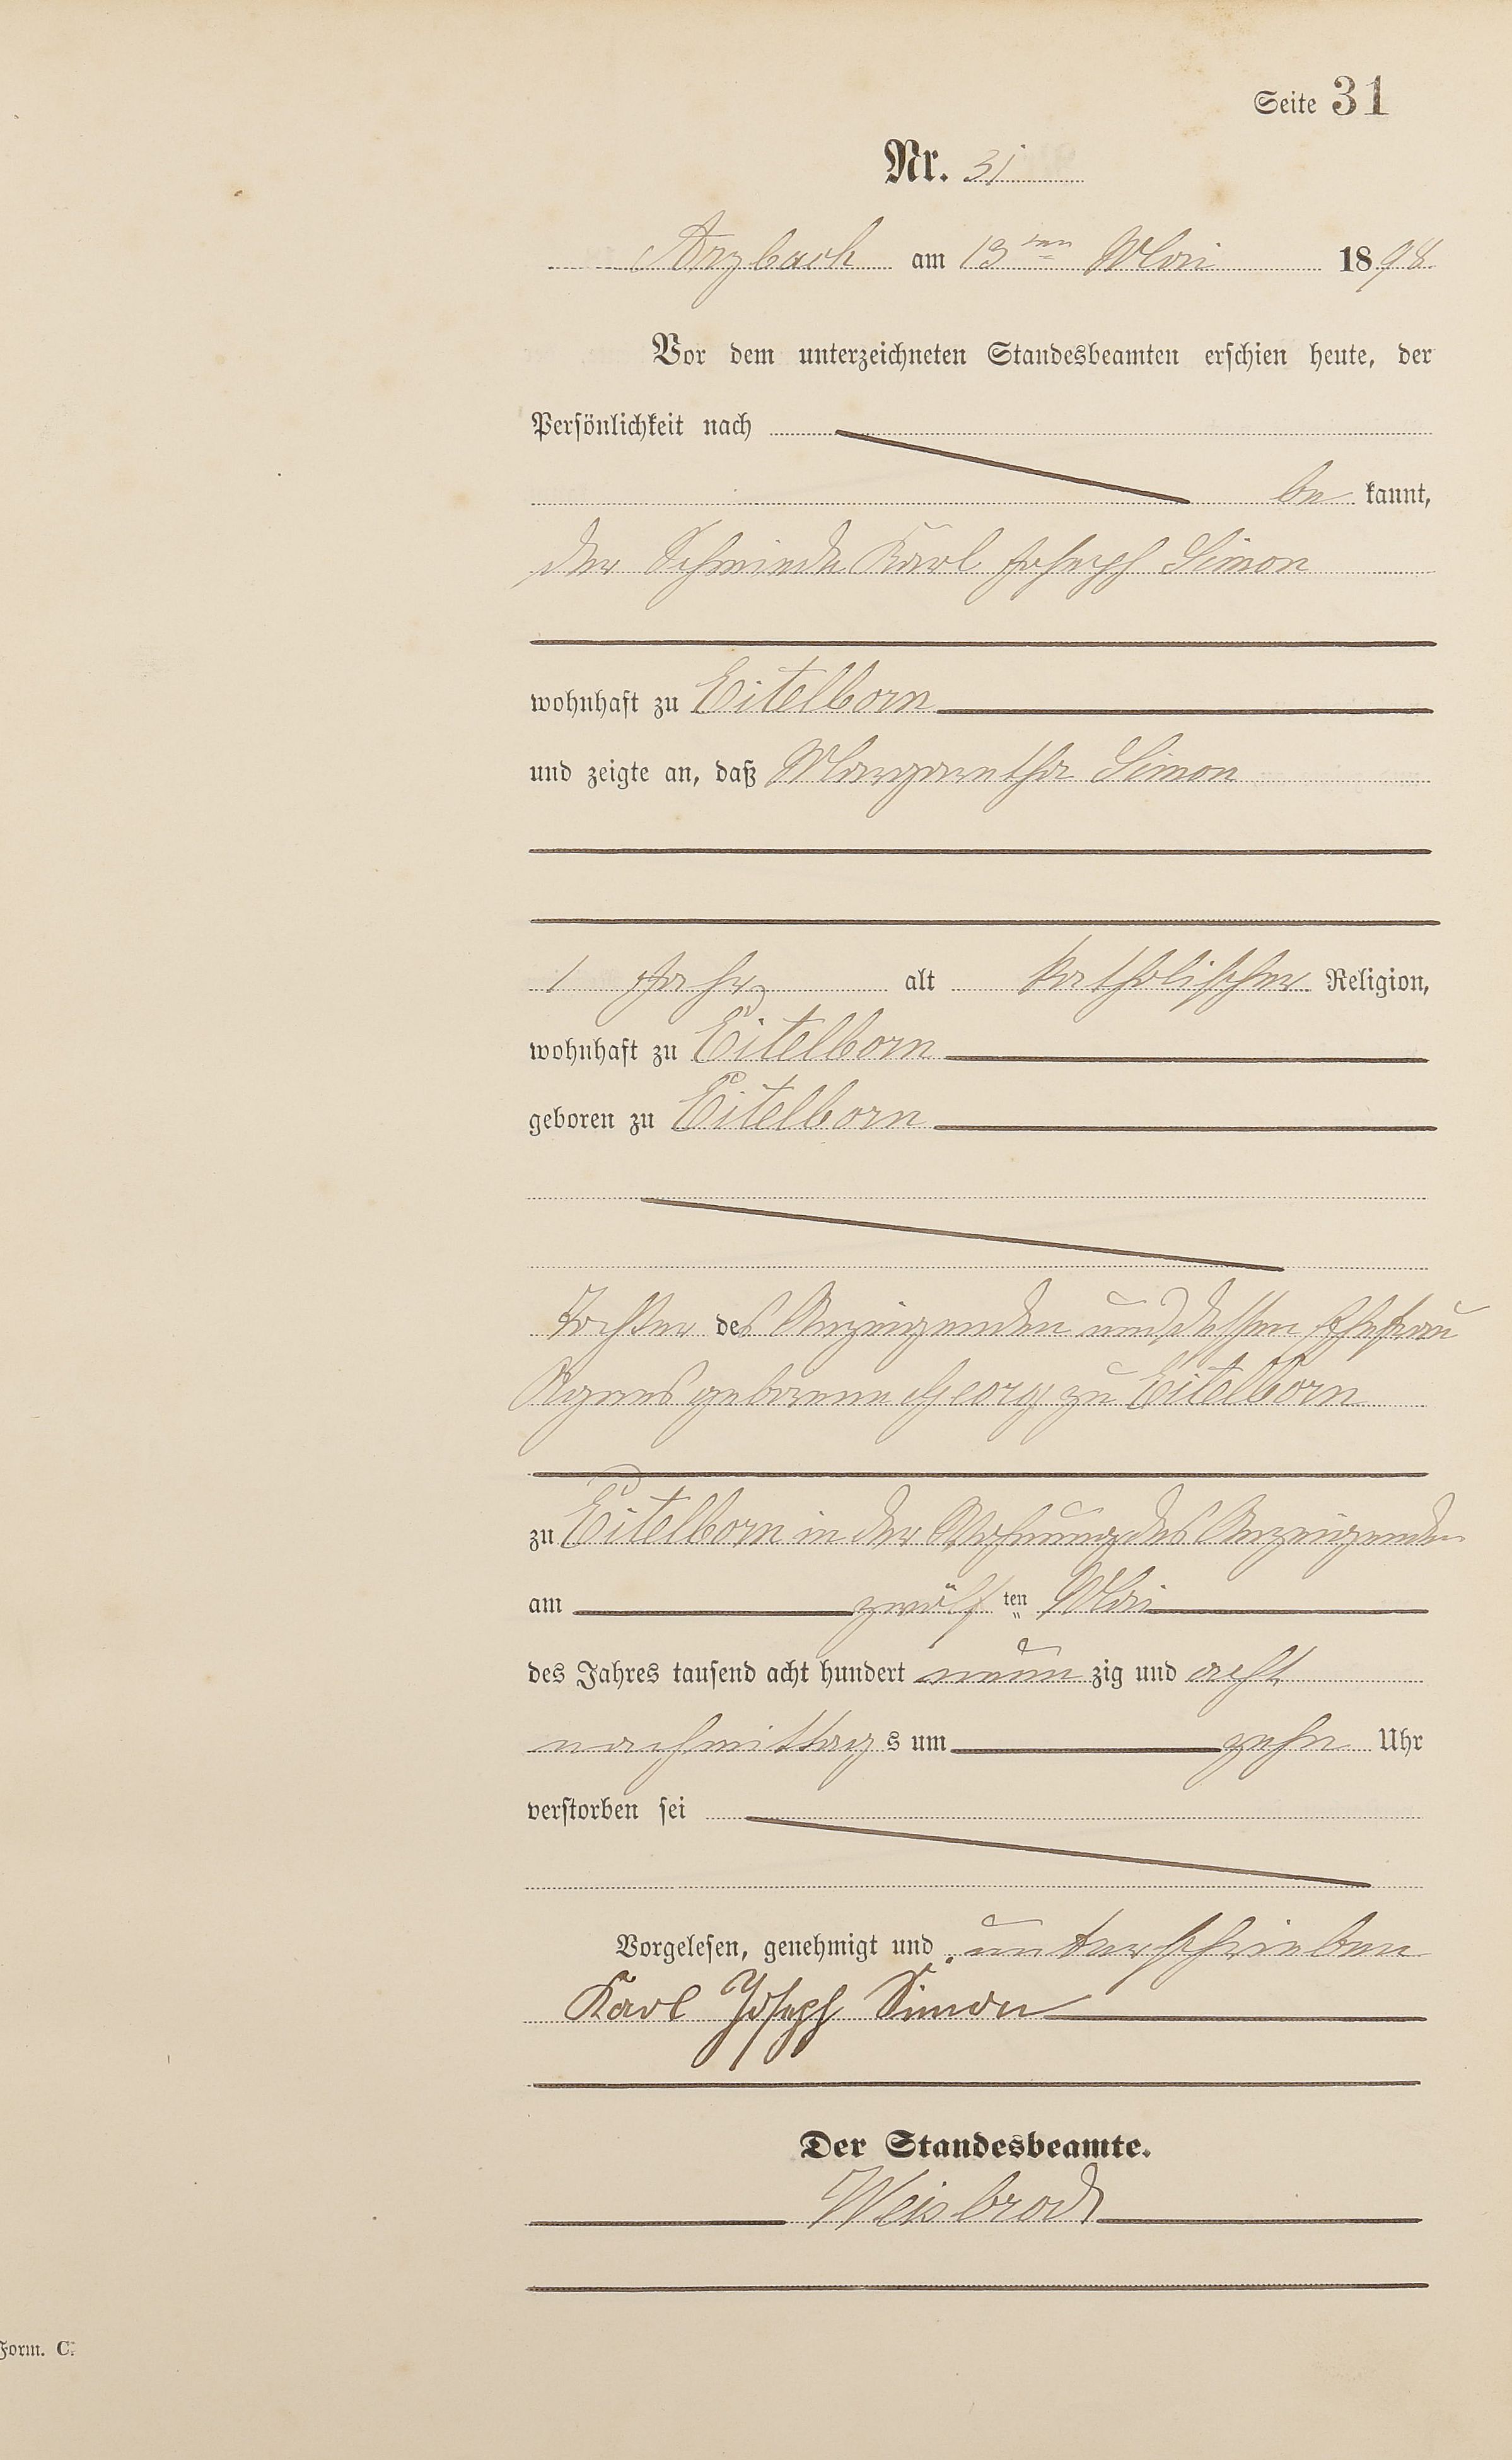 Seite 31
Nr. 31
Arzbach am 13ten Mai 1898
Vor dem unterzeichneten Standesbeamten erschien heute, der
Persönlichkeit nach
be kannt,
der Schmiede Karl Joseph Simon
wohnhaft zu Eitelborn
und zeigte an, daß Margaretha Simon
1 Jahr alt katholischer Religion,
wohnhaft zu Eitelborn
geboren zu Eitelborn
Tochter des Anzeigenden und dessen Ehefrau
Agnes geborene Georg zu Eitelborn
zu Eitelborn in der Wohnung des Anzeigenden
am zwölf ten Mai
des Jahres tausend acht hundert neun zig und acht
nachmittag s um zehn Uhr
verstorben sei
Vorgelesen, genehmigt und unterschrieben
Karl Joseph Simon
Der Standesbeamte.
Weisbrod
Form. C.